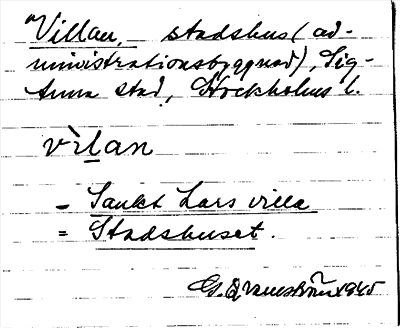 Villan, stadshus (ad-
ministrationsbyggnad), Sig-
tuna stad, Stockholms l.
vìlan
- Sankt Lars villa
= Stadshuset.
1945